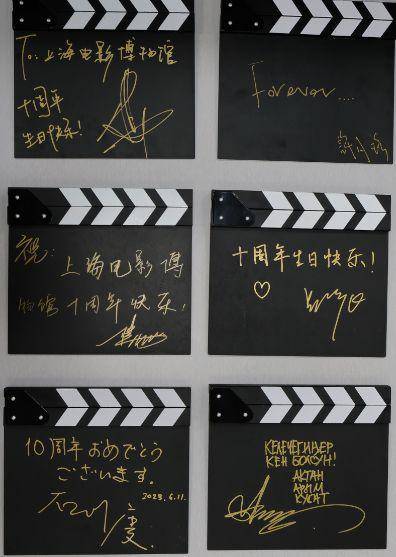 To: 上海电影博物馆
十周年
生日快乐!
Forever....
祝:
上海电影博
物馆十周年快乐!
十周年生日快乐!
♡
10周年おめでとう
ございます。
石川慶
2023.6.11.
КЕЛЕЧЕГИҢЕР
КЕҢ БОЛСУН!
АКТАН
АРЫМ
КУБАТ